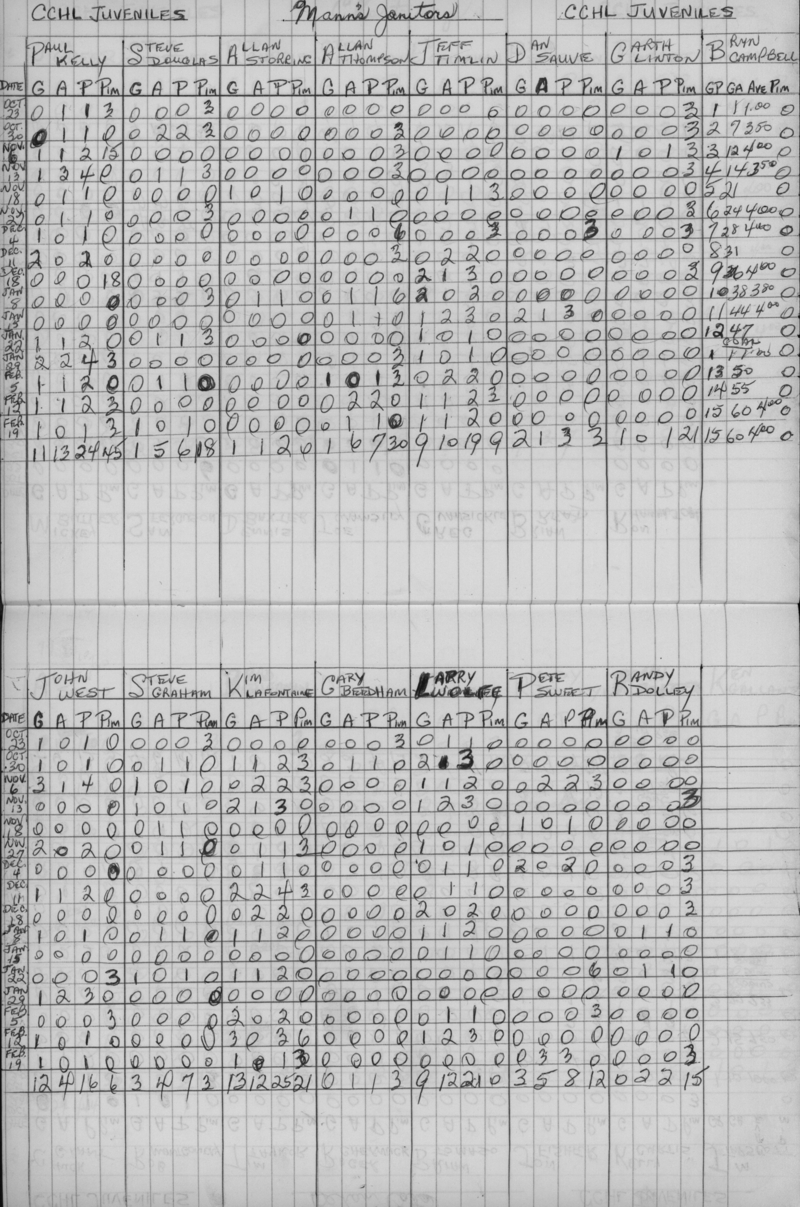 CCHL JUVENILES Mann's Janitors CCHL JUVENILES
PAUL KELLY STEVE DOUGLAS ALLAN STORRING ALLAN THOMPSON JEFF TIMLIN DAN SAUVE GARTH LINTON BRYN CAMPBELL
DATE G A P Pim G A P Pim G A P Pim G A P Pim G A P Pim G A P Pim G A P Pim GP GA Ave Pim
OCT 23 0 1 1 3 0 0 0 3 0 0 0 0 0 0 0 0 0 0 0 0 0 0 0 0 0 0 0 3 1 1 1.00 0
OCT 30 0 1 1 0 0 2 2 3 0 0 0 0 0 0 0 3 0 0 0 0 0 0 0 0 0 0 0 3 2 7 3.50 0
NOV 6 1 1 2 15 0 0 0 0 0 0 0 0 0 0 0 3 0 0 0 0 0 0 0 0 1 0 1 3 3 12 4.00 0
NOV 13 1 3 4 0 0 1 1 3 0 0 0 0 0 0 0 3 0 0 0 0 0 0 0 0 0 0 0 3 4 14 3.50 0
NOV 18 0 1 1 0 0 0 0 0 1 0 1 0 0 0 0 0 0 1 1 3 0 0 0 0 0 0 0 0 5 21 0
NOV 27 0 1 1 0 0 0 0 3 0 0 0 0 0 1 1 0 0 0 0 0 0 0 0 0 0 0 0 3 6 24 4.00 0
DEC 4 1 0 1 0 0 0 0 0 0 0 0 0 0 0 0 6 0 0 0 3 0 0 0 3 0 0 0 3 7 28 4.00 0
DEC. 11 2 0 2 0 0 0 0 0 0 0 0 0 0 0 0 3 0 2 2 0 0 0 0 0 0 0 0 0 8 31 0
DEC. 18 0 0 0 18 0 0 0 0 0 0 0 0 0 0 0 0 2 1 3 0 0 0 0 0 0 0 0 3 9 36 4.00 0
JAN 8 0 0 0 0 0 0 0 3 0 1 1 0 0 1 1 6 2 0 2 0 0 0 0 0 0 0 0 0 10 38 3.80 0
JAN 0 0 0 0 0 0 0 0 0 0 0 0 0 1 1 0 1 2 3 0 2 1 3 0 0 0 0 0 11 44 4.00 0
JAN 22 1 1 2 0 0 1 1 3 0 0 0 0 0 0 0 0 1 0 1 0 0 0 0 0 0 0 0 0 12 47 0
JAN 29 2 2 4 3 0 0 0 0 0 0 0 0 0 0 0 3 1 0 1 0 0 0 0 0 0 0 0 0
FEB 5 1 1 2 0 0 1 1 0 0 0 0 0 1 0 1 3 0 2 2 0 0 0 0 0 0 0 0 0 13 50 0
FEB 12 1 1 2 3 0 0 0 0 0 0 0 0 0 2 2 0 1 1 2 3 0 0 0 0 0 0 0 0 14 55 0
FEB 19 1 0 1 3 1 0 1 0 0 0 0 0 0 1 1 0 1 1 2 0 0 0 0 0 0 0 0 0 15 60 4.00 0
11 13 24 45 1 5 6 18 1 1 2 0 1 6 7 30 9 10 19 9 2 1 3 3 1 0 1 21 15 60 4.00 0
JOHN WEST STEVE GRAHAM KIM LAFONTAINE GARY BEEDHAM LARRY WOLFE PETE SWEET RANDY DOLLEY
DATE G A P Pim G A P Pim G A P Pim G A P Pim G A P Pim G A P Pim G A P Pim
OCT 23 1 0 1 0 0 0 0 3 0 0 0 0 0 0 0 3 0 1 1 0 0 0 0 0 0 0 0 0
OCT 30 1 0 1 0 0 1 1 0 1 1 2 3 0 1 1 0 2 1 3 0 0 0 0 0 0 0 0 0
NOV 6 3 1 4 0 1 0 1 0 0 2 2 3 0 0 0 0 1 1 2 0 0 2 2 3 0 0 0 0
NOV. 13 0 0 0 0 1 0 1 0 2 1 3 0 0 0 0 0 1 2 3 0 0 0 0 0 0 0 0 3
NOV 18 0 0 0 0 0 1 1 0 0 0 0 0 0 0 0 0 0 0 0 0 1 0 1 0 0 0 0 0
NOV 27 2 0 2 0 0 1 1 0 0 1 1 3 0 0 0 0 1 0 1 0 0 0 0 0 0 0 0 0
DEC. 4 0 0 0 0 0 0 0 0 0 1 1 0 0 0 0 0 0 1 1 0 2 0 2 0 0 0 0 3
DEC. 11 1 1 2 0 0 0 0 0 2 2 4 3 0 0 0 0 0 1 1 0 0 0 0 0 0 0 0 3
DEC. 18 0 0 0 0 0 0 0 0 0 2 2 0 0 0 0 0 2 0 2 0 0 0 0 0 0 0 0 3
JAN 8 1 0 1 0 0 1 1 0 1 1 2 0 0 0 0 0 1 1 2 0 0 0 0 0 0 1 1 0
JAN 15 0 0 0 0 0 0 0 0 0 0 0 0 0 0 0 0 0 1 1 0 0 0 0 0 0 0 0 0
JAN 22 0 0 0 3 1 0 1 0 1 1 2 0 0 0 0 0 0 0 0 0 0 0 0 6 0 1 1 0
JAN 29 1 2 3 0 0 0 0 0 0 0 0 0 0 0 0 0 0 0 0 0 0 0 0 0 0 0 0 0
FEB. 5 0 0 0 3 0 0 0 0 2 0 2 0 0 0 0 0 0 1 1 0 0 0 0 3 0 0 0 0
FEB. 12 1 0 1 0 0 0 0 0 3 0 3 6 0 0 0 0 1 2 3 0 0 0 0 0 0 0 0 0
FEB 19 1 0 1 0 0 0 0 0 1 0 1 3 0 0 0 0 0 0 0 0 0 3 3 0 0 0 0 3
12 4 16 6 3 4 7 3 13 12 25 21 0 1 1 3 9 12 21 0 3 5 8 12 0 2 2 15